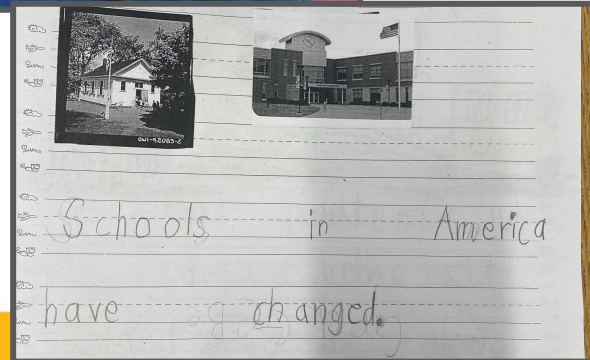 OWI-92089-Z
Schools in America
have changed.